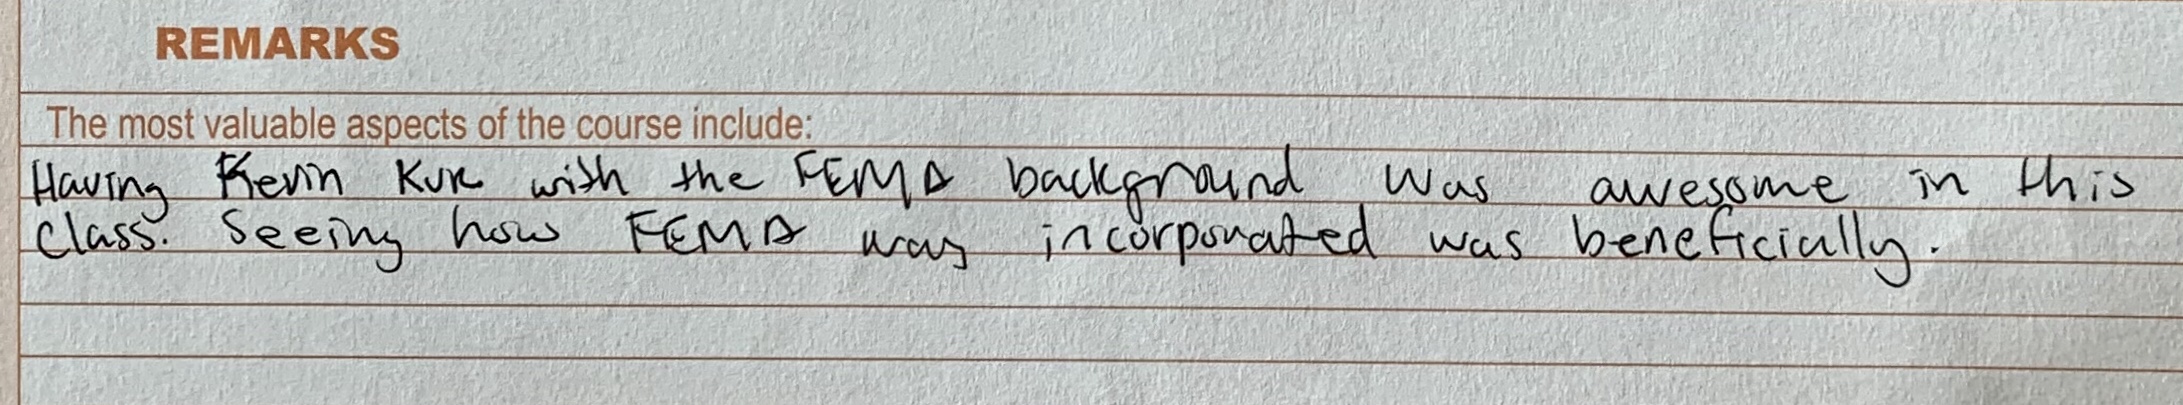 REMARKS
The most valuable aspects of the course include:
Having Kevin Kuk with the FEMA background was awesome in this
class. Seeing how FEMA was incorporated was beneficially.